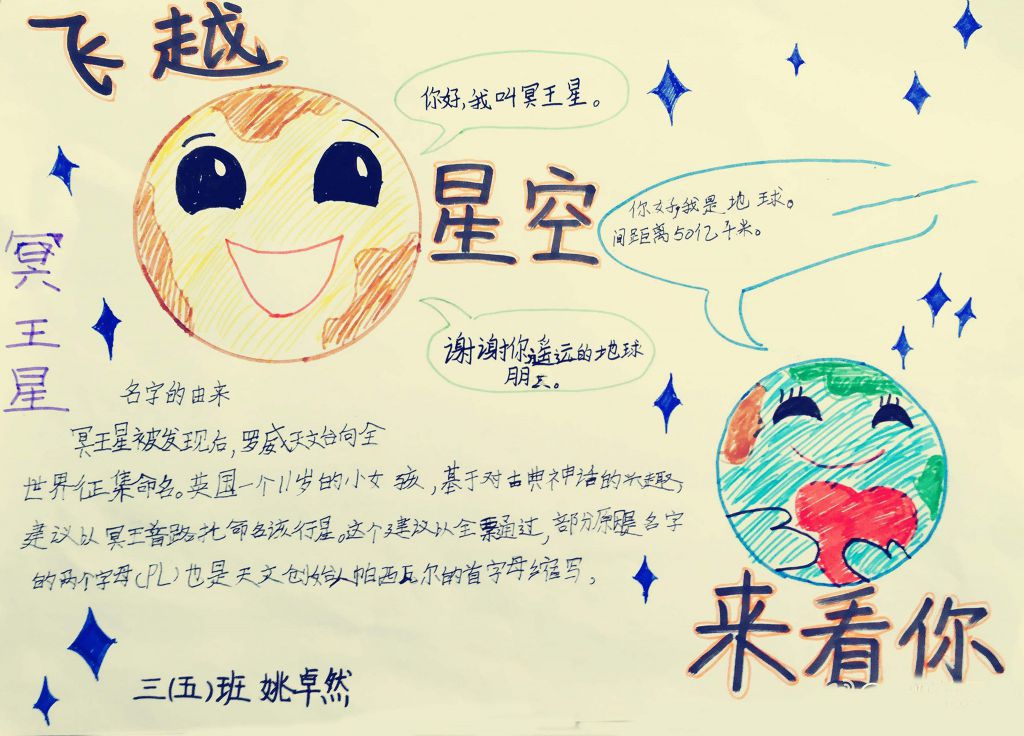 飞越
星空
来看你
冥王星
你好,我叫冥王星。
你好,我是地球。
间距离50亿千米。
谢谢你遥远的地球
朋友。
名字的由来
冥王星被发现后,罗威天文台向全
世界征集命名。英国一个11岁的小女孩,基于对古典神话的兴趣,
建议以冥王普路托命名该行星。这个建议以全票通过,部分原是名字
的两个字母(PL)也是天文创始人帕西瓦尔的首字母缩写。
三(五)班 姚卓然